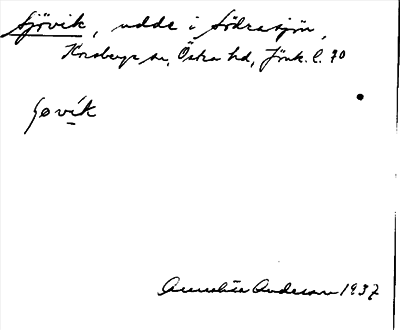 Sjövik, udde i Södrasjön,
Korsberga sn, Östra hd, Jönk. l. 70
ʃøvik
Annabéa Anderson 1937